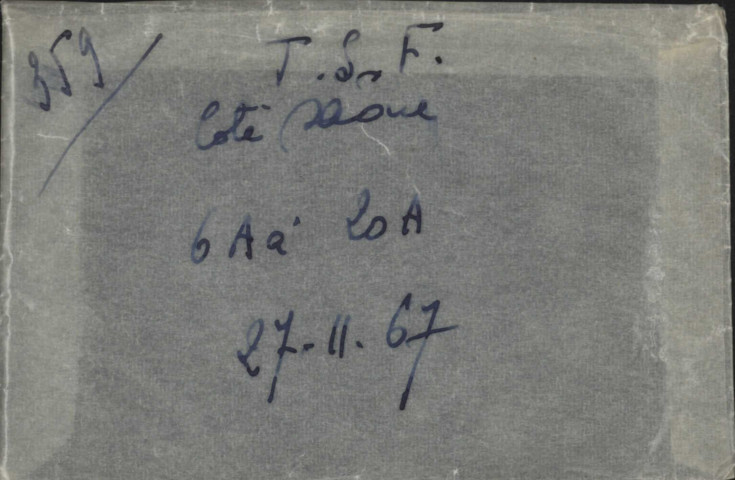 359
T.S.F.
Coté Rhône
6A à 20A
27-11-67